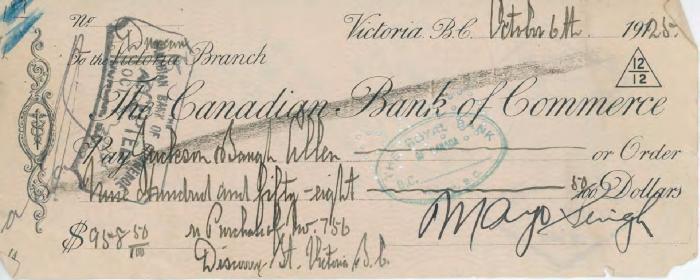 No.
Victoria, B.C. October 6th 1925.
Duncan
To the Victoria Branch
12
12
The Canadian Bank of Commerce
Pay Jackson Baugh Allen or Order
Nine Hundred and fifty-eight 50/100 Dollars
$958 50/100
756
Discovery St. Victoria B.C.
Mayo Singh
THE ROYAL BANK
OF CANADA
B.C.
ACCEPTED